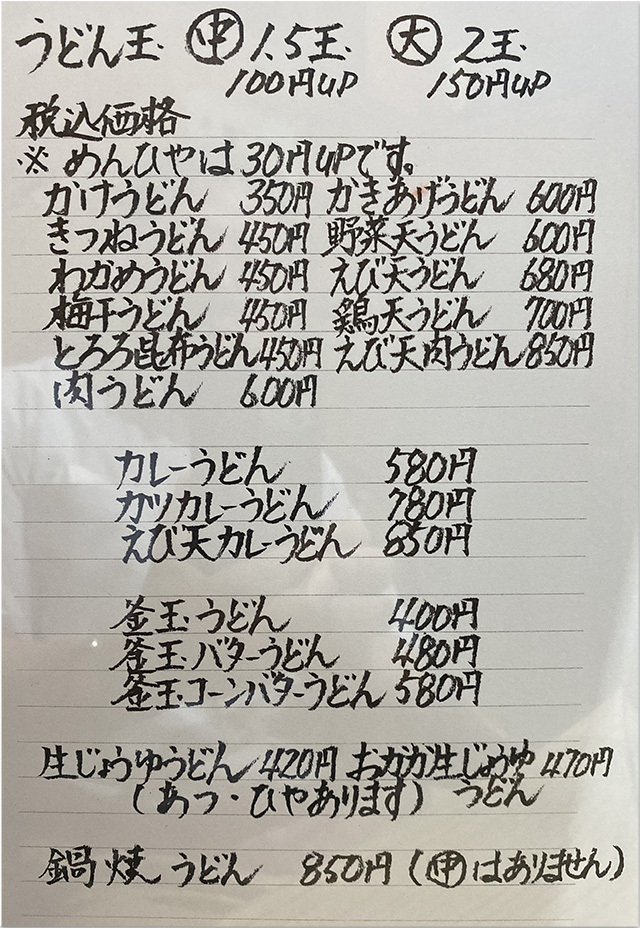 うどん玉 ㊥ 1.5玉 ㊅ 2玉
100円UP 150円UP
税込価格
※ めんひやは30円UPです。
かけうどん 350円 かきあげうどん 600円
きつねうどん 450円 野菜天うどん 600円
わかめうどん 450円 えび天うどん 680円
梅干うどん 450円 鶏天うどん 700円
とろろ昆布うどん 450円 えび天肉うどん 850円
肉うどん 600円
カレーうどん 580円
カツカレーうどん 780円
えび天カレーうどん 850円
釜玉うどん 400円
釜玉バターうどん 480円
釜玉コーンバターうどん 580円
生じょうゆうどん 420円 おガガ生じょうゆ 470円
(あつ・ひやあります) うどん
鍋焼うどん 850円 (㊥はありません)